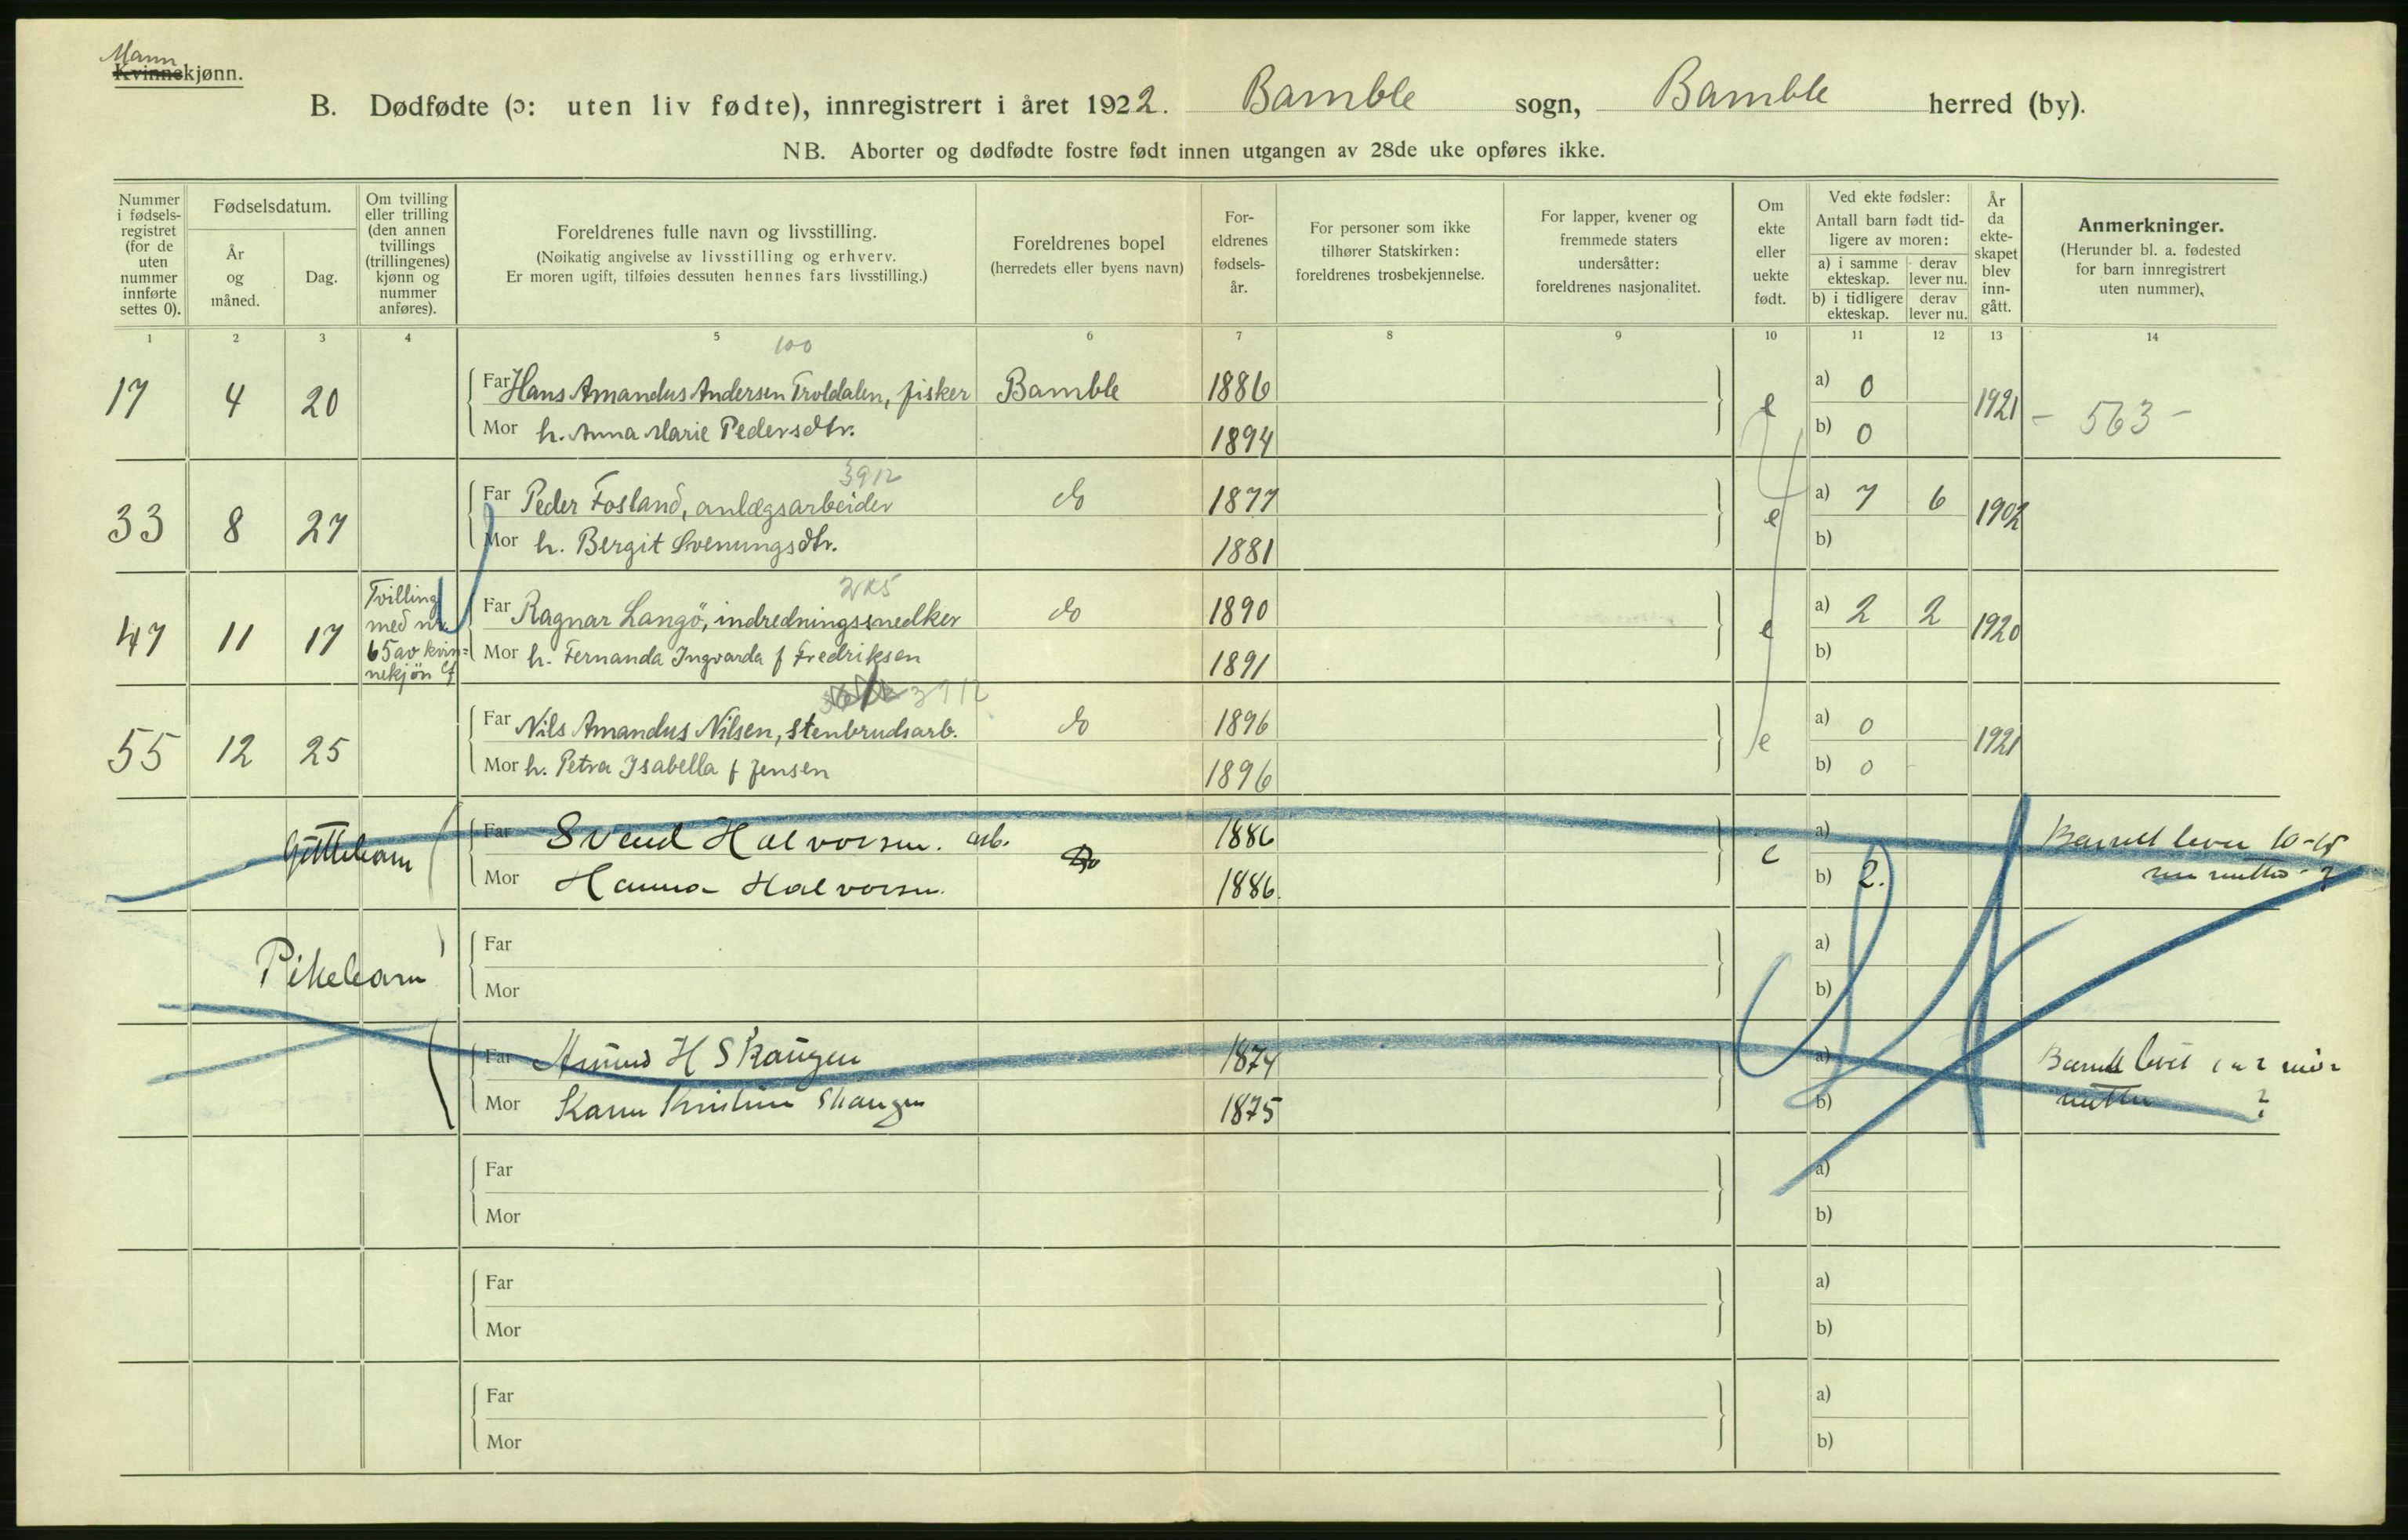 Mann
Kvinnekjønn.
B. Dødfødte (ɔ: uten liv fødte), innregistrert i året 1922. Bamble sogn, Bamble herred (by).
NB. Aborter og dødfødte fostre født innen utgangen av 28de uke opføres ikke.
Nummer
i fødsels-
registret
(for de
uten
nummer
innførte
settes 0).
Fødselsdatum.
År
og
måned.
Dag.
Om tvilling
eller trilling
(den annen
tvillings
(trillingenes)
kjønn og
nummer
anføres).
Foreldrenes fulle navn og livsstilling.
(Nøikatig angivelse av livsstilling og erhverv.
Er moren ugift, tilføies dessuten hennes fars livsstilling.)
Foreldrenes bopel
(herredets eller byens navn)
For-
eldrenes
fødsels-
år.
For personer som ikke
tilhører Statskirken:
foreldrenes trosbekjennelse.
For lapper, kvener og
fremmede staters
undersåtter:
foreldrenes nasjonalitet.
Om
ekte
eller
uekte
født.
Ved ekte fødsler:
Antall barn født tid-
ligere av moren:
a) i samme
ekteskap.
derav
lever nu.
b) i tidligere
ekteskap.
derav
lever nu.
År
da
ekte-
skapet
blev
inn-
gått.
Anmerkninger.
(Herunder bl. a. fødested
for barn innregistrert
uten nummer),
1 2 3 4 5 6 7 8 9 10 11 12 13 14
100
17 4 20 Far Hans Amandus Andersen Troldalen, fisker Bamble 1886 e a) 0 1921 - 563 -
Mor h. Anna Marie Pedersdtr. 1894 b) 0
3912
33 8 27 Far Peder Fosland, anlægsarbeider do 1877 e a) 7 6 1902
Mor h. Bergit Svenungsdtr. 1881 b)
Tvilling
med nr.
65 av kvin=
nekjön
47 11 17 Far Ragnar Langö, indredningssnedker do 1890 e a) 2 2 1920
Mor h. Fernanda Ingvarda f Fredriksen 1891 b)
3912
55 12 25 Far Nils Amandus Nilsen, Stenbrudsarb. do 1896 e a) 0 1921
Mor h. Petra Isabella f Jensen 1896 b) 0
Guttebarn Far Svend Halvorsen. arb. Do 1886 e a) Barnet lever 10-15
Mor Hanna Halvorsen. 1886. b) 2. ?
Pikebarn Far a)
Mor b)
Far H Skaugen 1874 a) Barnet
Mor Karen Kristine Skaugen 1875 b) ?
Far a)
Mor b)
Far a)
Mor b)
Far a)
Mor b)